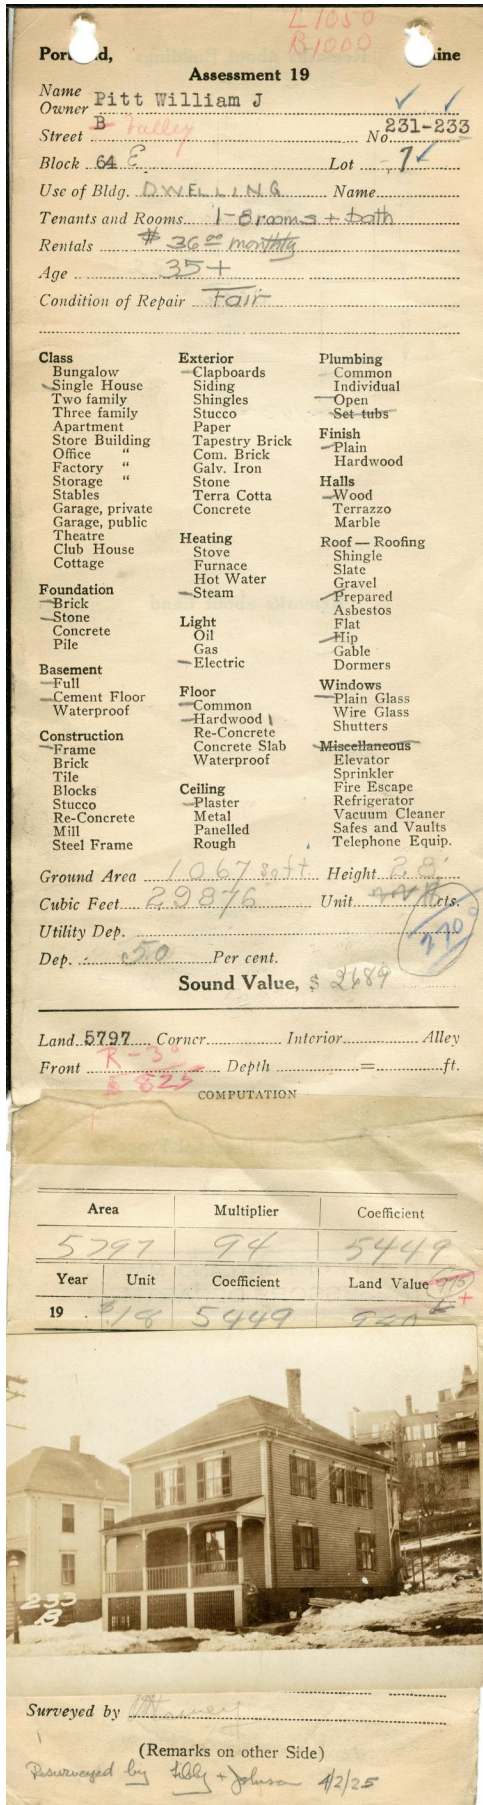 L 1050
B 1000
Portland, Maine
Assessment 19
Name
Owner Pitt William J
Street B Valley No. 231-233
Block 64 E Lot 7
Use of Bldg. DWELLING Name
Tenants and Rooms 1-8 rooms + bath
Rentals $ 36 00 monthly
Age 35 +
Condition of Repair Fair
Class
Bungalow
Single House
Two family
Three family
Apartment
Store Building
Office "
Factory "
Storage "
Stables
Garage, private
Garage, public
Theatre
Club House
Cottage
Foundation
Brick
Stone
Concrete
Pile
Basement
Full
Cement Floor
Waterproof
Construction
Frame
Brick
Tile
Blocks
Stucco
Re-Concrete
Mill
Steel Frame
Exterior
Clapboards
Siding
Shingles
Stucco
Paper
Tapestry Brick
Com. Brick
Galv. Iron
Stone
Terra Cotta
Concrete
Heating
Stove
Furnace
Hot Water
Steam
Light
Oil
Gas
Electric
Floor
Common
Hardwood 1
Re-Concrete
Concrete Slab
Waterproof
Ceiling
Plaster
Metal
Panelled
Rough
Plumbing
Common
Individual
Open
Set tubs
Finish
Plain
Hardwood
Halls
Wood
Terrazzo
Marble
Roof — Roofing
Shingle
Slate
Gravel
Prepared
Asbestos
Flat
Hip
Gable
Dormers
Windows
Plain Glass
Wire Glass
Shutters
Miscellaneous
Elevator
Sprinkler
Fire Escape
Refrigerator
Vacuum Cleaner
Safes and Vaults
Telephone Equip.
Ground Area 1067 sq ft Height 28'
Cubic Feet 29876 Unit cts.
Utility Dep.
Dep. 50 Per cent.
Sound Value, $ 2689
Land 5797 Corner Interior Alley
Front Depth = ft.
COMPUTATION
Area Multiplier Coefficient
5797 94 5449
Year Unit Coefficient Land Value 975
19 $.18 5449 980
233
B
Surveyed by
(Remarks on other Side)
Resurveyed by Libby + Johnson 4/2/25